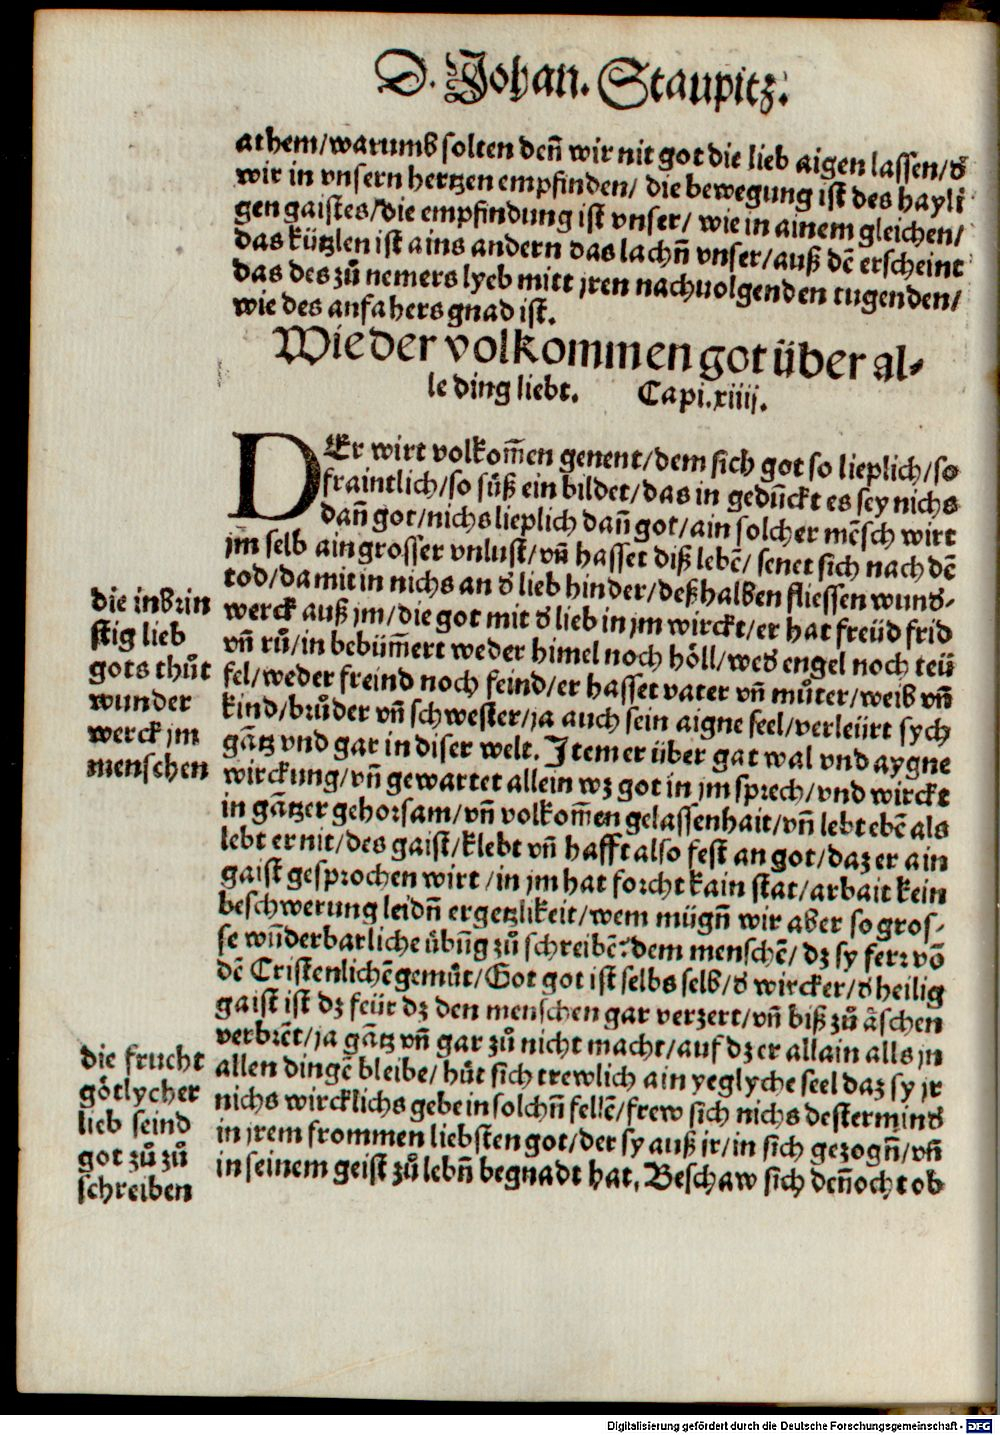 D. Johan. Staupitz.
athem/warumb solten deñ wir nit got die lieb aigen lassen/d̕
wir in vnsern hertzen empfinden/ die bewegung ist des hayli
gen gaistes/die empfindung ist vnser/ wie in ainem gleichen/
das kützlen ist ains andern das lachñ vnser/auß dē erscheint
das des zů nemers lyeb mitt jren nachuolgenden tugenden/
wie des anfahers gnad ist.
Wie der volkommen got über al-
le ding liebt. Capi.xiiij.
DEr wirt volkom̄en genent/dem sich got so lieplich/so
fraintlich/so süß ein bildet/das in gedũckt es sey nichs
dañ got/nichs lieplich dañ got/ain solcher mēsch wirt
jm selb ain grosser vnlust/vñ hasset diß lebē/ senet sich nach dē
tod/damit in nichs an d̕ lieb hinder/deßhalben fliessen wund̕-
werck auß jm/die got mit d̕ lieb in jm wirckt/er hat freüd frid
vñ rů/in bebüm̄ert weder himel noch höll/wed̕ engel noch teü
fel/weder freind noch feind/er hasset vater vñ můter/weib vñ
kind/brůder vñ schwester/ja auch sein aigne seel/verleürt sych
gãtz vnd gar in diser welt. Item er über gat wal vnd aygne
wirckung/vñ gewartet allein wz got in jm sprech/vnd wirckt
in gãtzer gehorsam/vñ volkom̄en gelassenhait/vñ lebt ebē als
lebt er nit/des gaist/klebt vñ hafft also fest an got/daz er ain
gaist gesprochen wirt/in jm hat forcht kain stat/arbait kein
beschwerung leidñ ergetzlikeit/wem mügñ wir aber so gros-
se wũderbarliche übũg zů schreibē?dem menschē/ dz sy ferr võ
dē Cristenlichē gemůt/Got got ist selbs selb/d̕ wircker/d̕ heilig
gaist ist dz feür dz den menschen gar verzert/vñ biß zů äschen
verbrēt/ja gãtz vñ gar zů nicht macht/auf dz er allain alls jn
allen dingē bleibe/hůt sich trewlich ain yeglyche seel daz sy jr
nichs wircklichs gebe in solchñ fellē/frew sich nichs destermind̕
in jrem frommen liebsten got/der sy auß jr/in sich gezogñ/vñ
in seinem geist zů lebñ begnadt hat, Beschaw sich deñocht ob
die inbrin
stig lieb
gots thůt
wunder
werck jm
menschen
die frucht
götlycher
lieb seind
got zů zů
schreiben
Digitalisierung gefördert durch die Deutsche Forschungsgemeinschaft - DFG